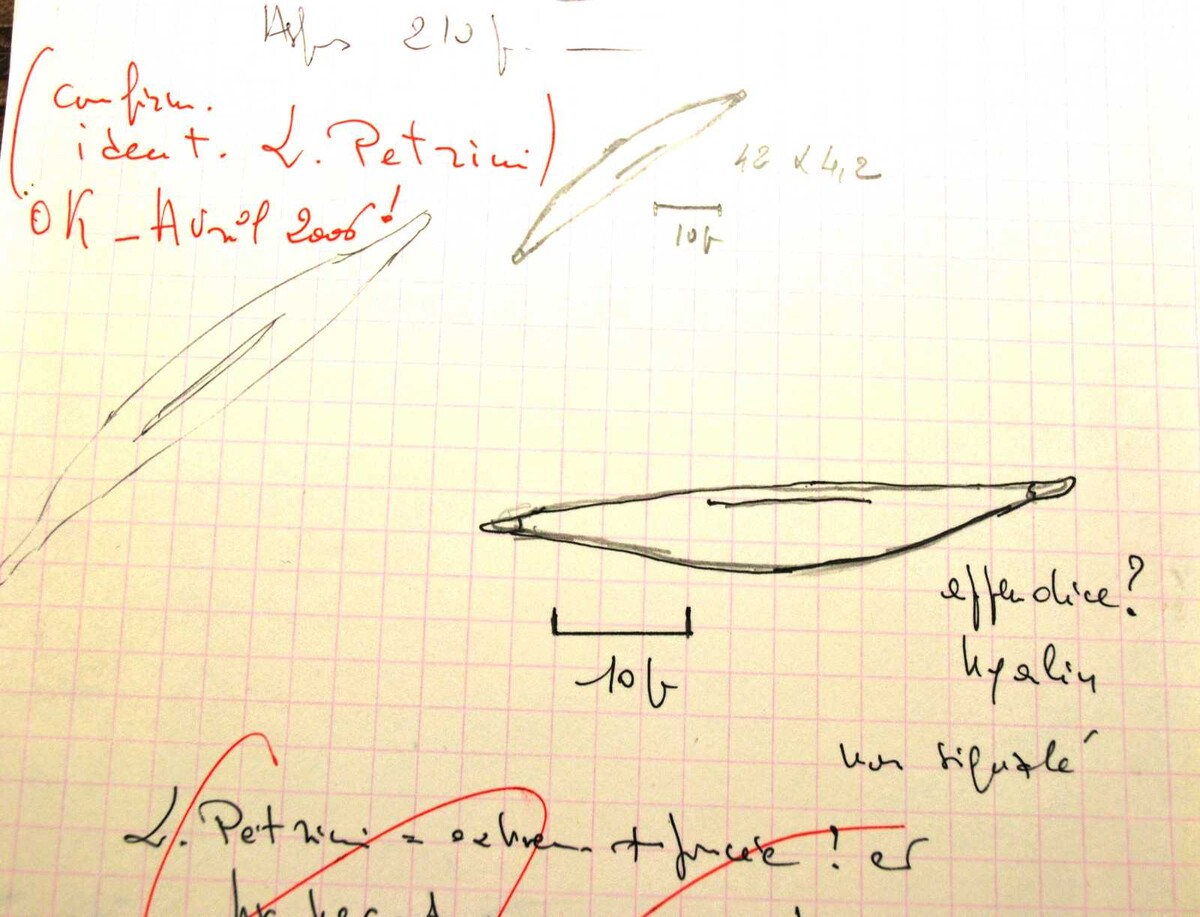 210 µ
(confirm.
ident. L. Petrini)
OK - Avril 2006!
42 x 4,2
10µ
10µ
appendice?
hyalin
non signalé
L. Petrini = extrem. + foncée ! et